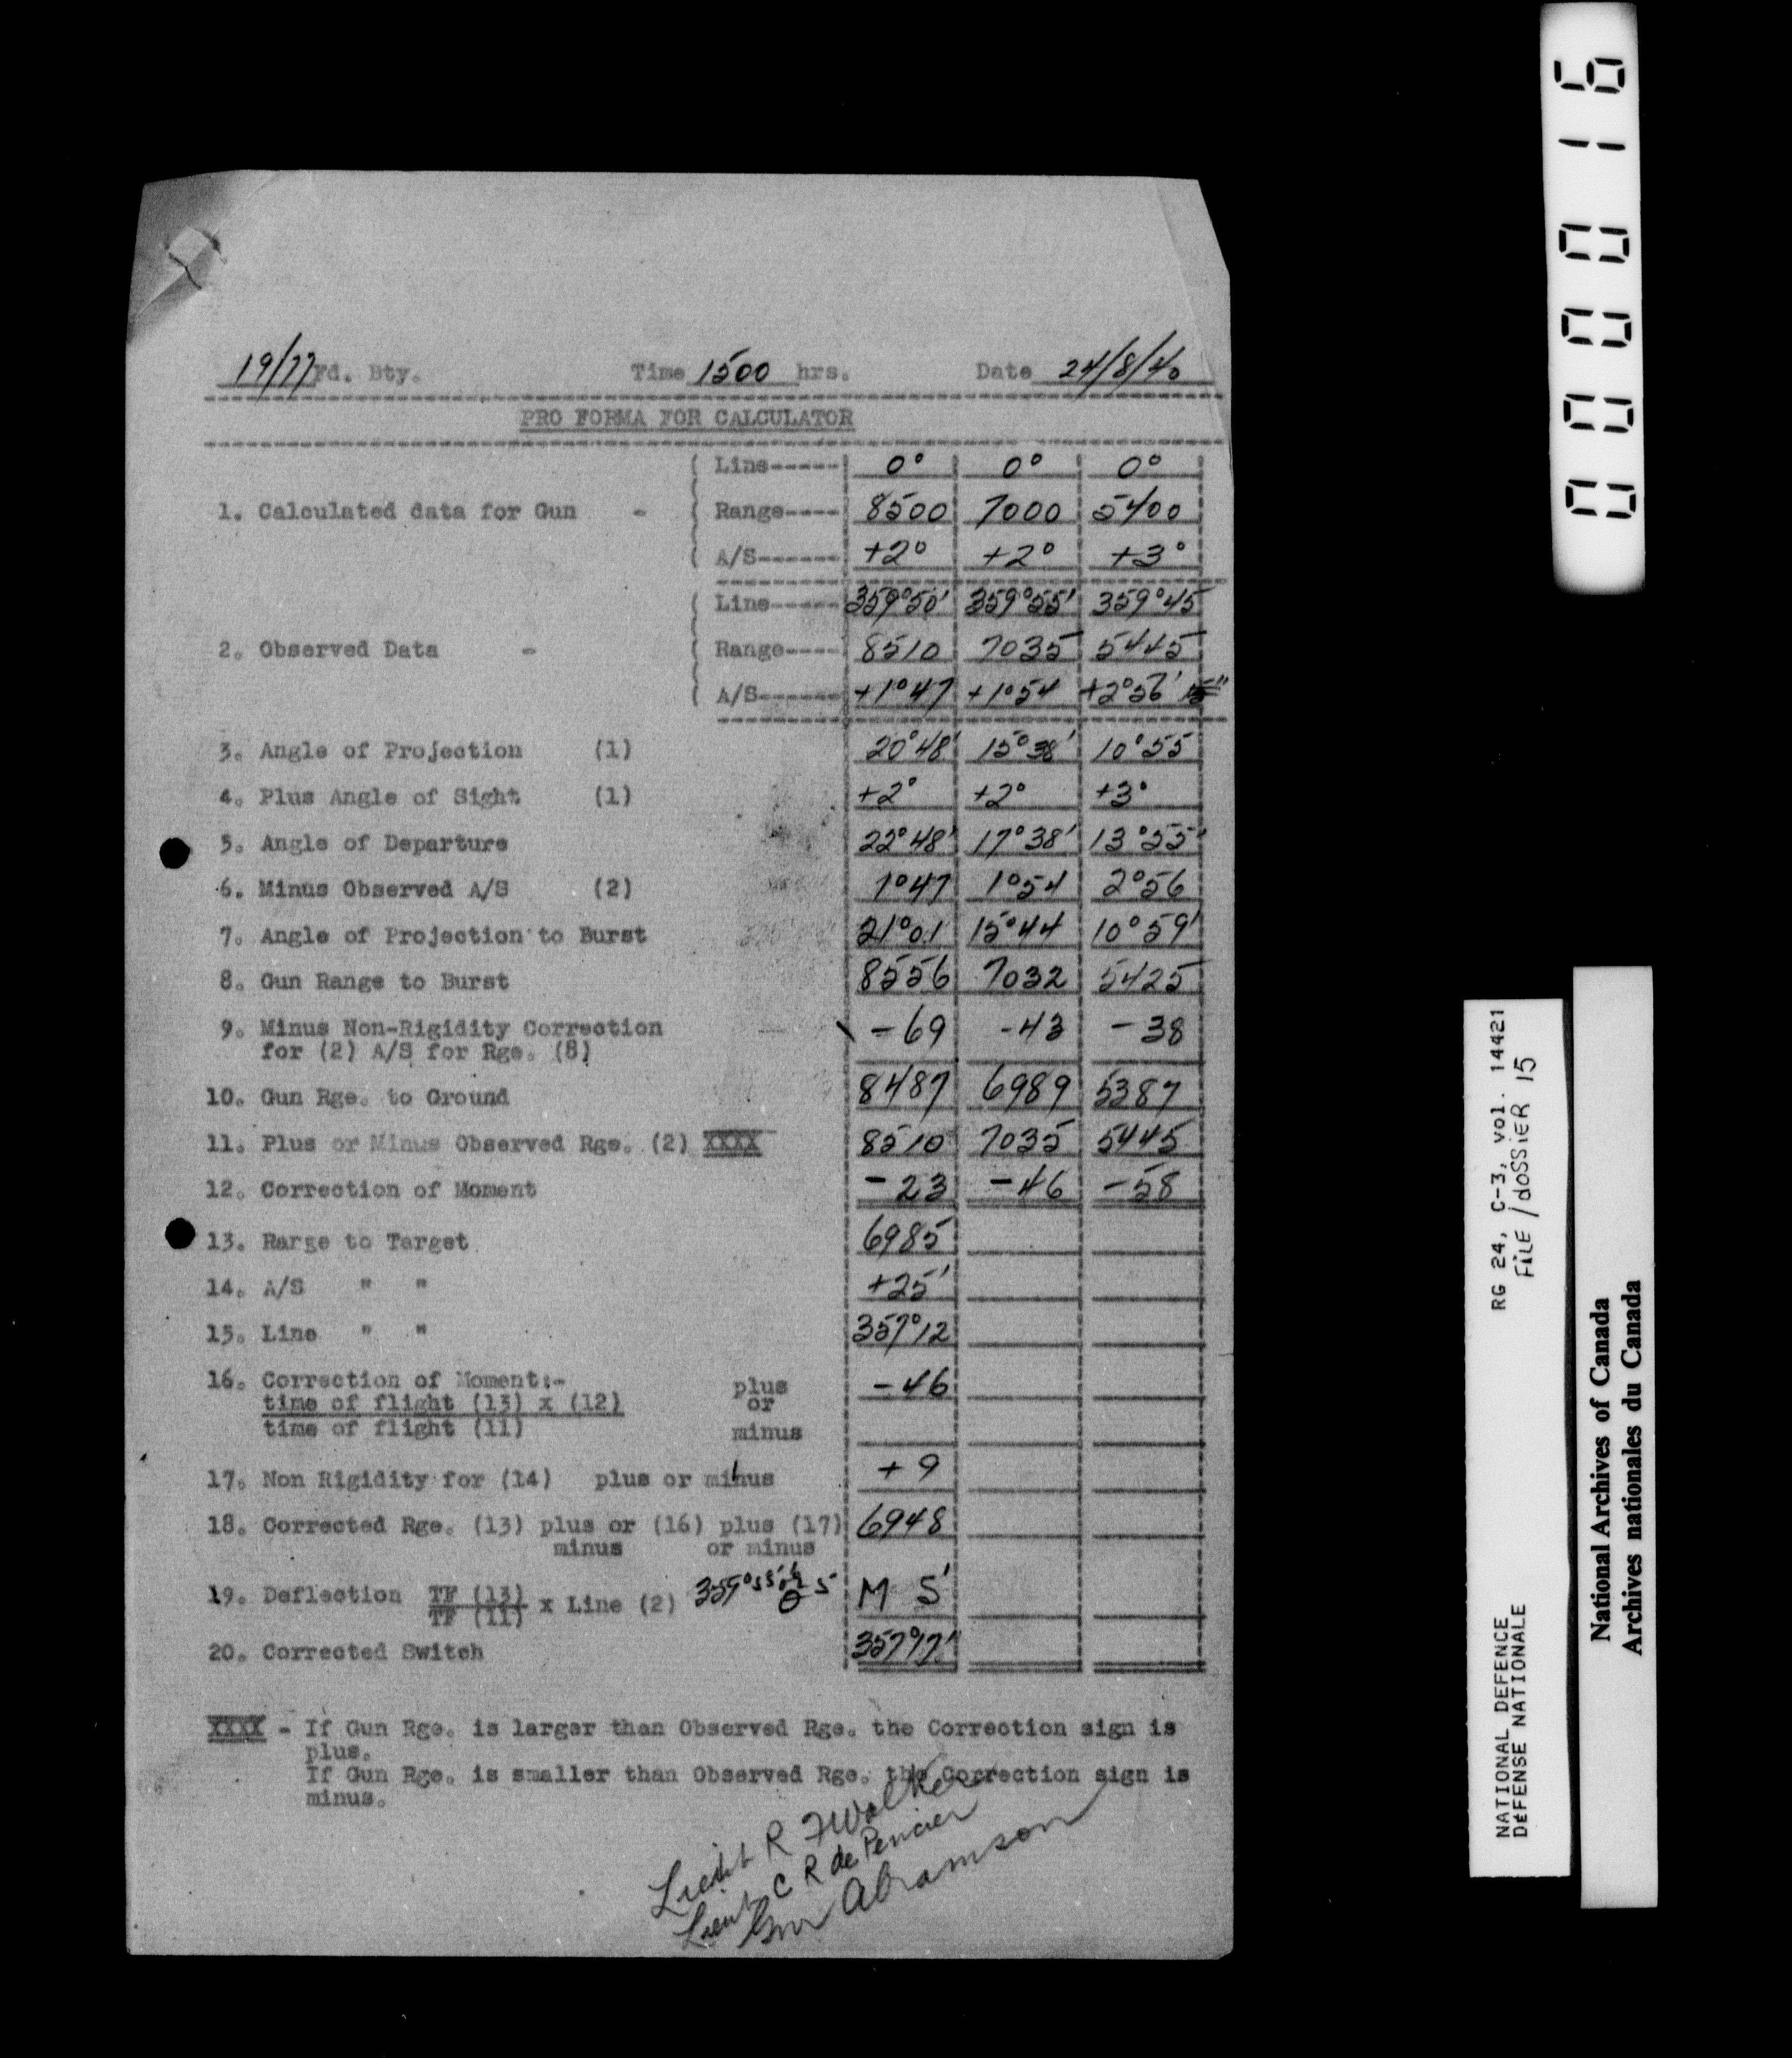 19/77 Fd. Bty. Time 1500 hrs. Date 24/8/40
PRO FORMA FOR CALCULATOR
( Line------ 0° 0° 0°
1. Calculated data for Gun - ( Range---- 8500 7000 5400
( A/S------ +2° +2° +3°
( Line------ 359°50' 359°55' 359°45
2. Observed Data - ( Range---- 8510 7035 5445
( A/S------ +1°47 +1°54 +2°56'
3. Angle of Projection (1) 20°48' 15°38' 10°55
4. Plus Angle of Sight (1) +2° +2° +3°
5. Angle of Departure 22°48' 17°38' 13°55'
6. Minus Observed A/S (2) 1°47 1°54 2°56
7. Angle of Projection to Burst 21°01 15°44 10°59'
8. Gun Range to Burst 8556 7032 5425
9. Minus Non-Rigidity Correction -69 -43 -38
for (2) A/S for Rge. (8)
10. Gun Rge. to Ground 8487 6989 5387
11. Plus or Minus Observed Rge. (2) XXXX 8510 7035 5445
12. Correction of Moment -23 -46 -58
13. Range to Target 6985
14. A/S " " +25'
15. Line " " 357°12
16. Correction of Moment:- plus -46
time of flight (13) x (12) or
time of flight (11) minus
17. Non Rigidity for (14) plus or minus +9
18. Corrected Rge. (13) plus or (16) plus (17) 6948
minus or minus
19. Deflection TF (13) x Line (2) 359°55' M 5'
TF (11)
20. Corrected Switch 357°17'
XXXX - If Gun Rge. is larger than Observed Rge. the Correction sign is
plus.
If Gun Rge. is smaller than Observed Rge. the Correction sign is
minus.
Lieut R F Walker
Lieut C R de Pencier
Gnr Abramson
000016
RG 24, C-3, vol. 14421
FILE / dOSSIER 15
NATIONAL DEFENCE
DéFENSE NATIONALE
National Archives of Canada
Archives nationales du Canada